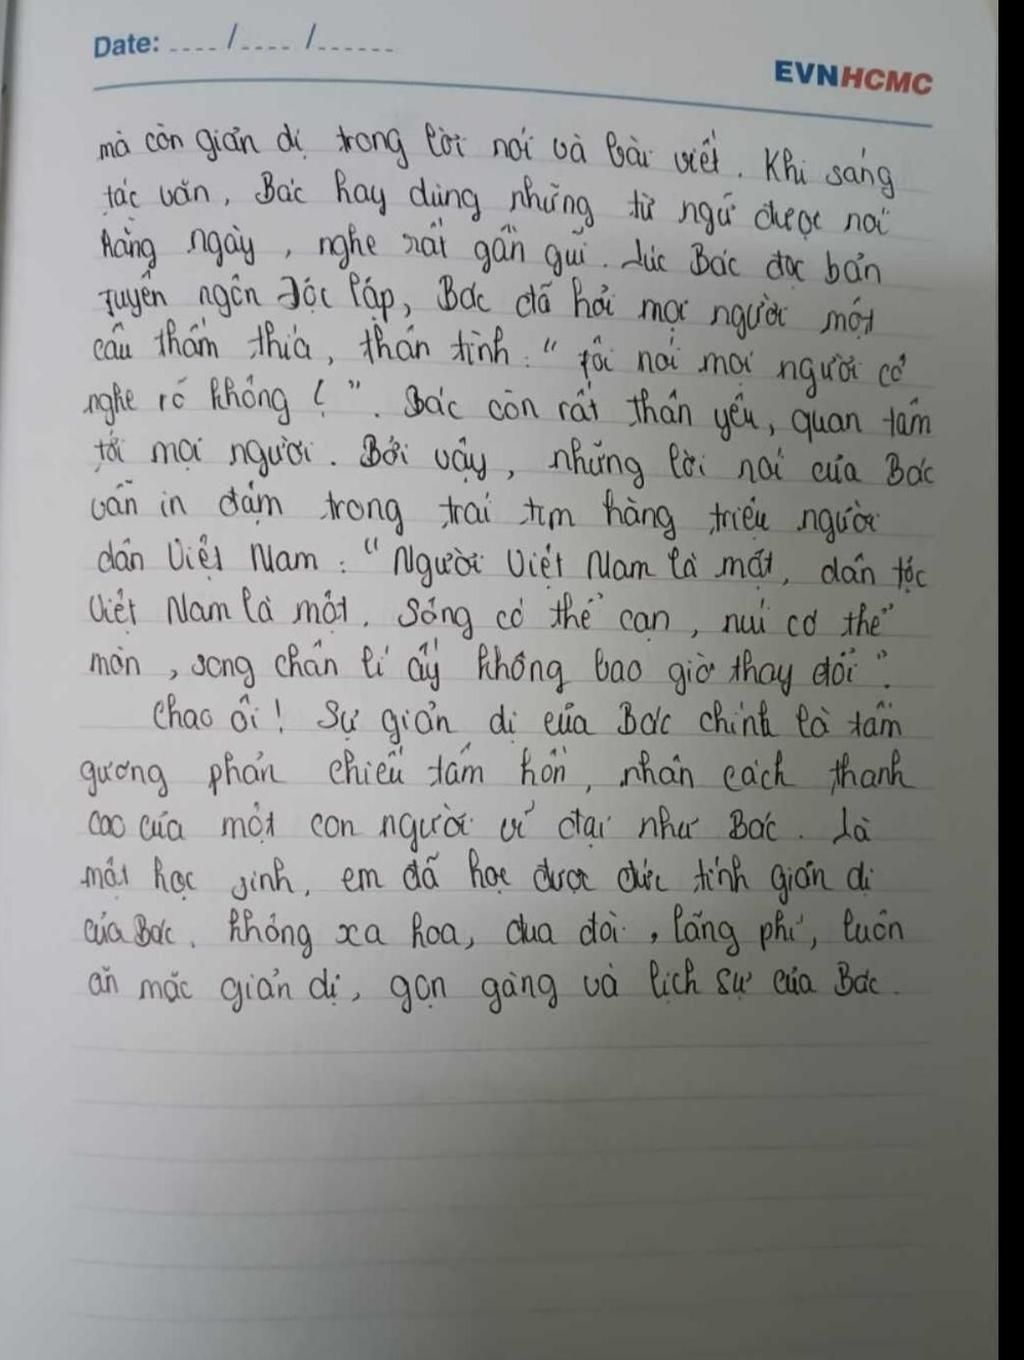 Date: ..../..../......
EVNHCMC
mà còn giản dị trong lời nói và bài viết. Khi sáng
tác văn, Bác hay dùng những từ ngữ được nói
hằng ngày, nghe rất gần gũi. Lúc Bác đọc bản
Tuyên ngôn Độc lập, Bác đã hỏi mọi người một
câu thấm thía, thân tình: " Tôi nói mọi người có
nghe rõ không ? ". Bác còn rất thân yêu, quan tâm
tới mọi người. Bởi vậy, những lời nói của Bác
vẫn in đậm trong trái tim hàng triệu người
dân Việt Nam : " Người Việt Nam là một, dân tộc
Việt Nam là một. Sông có thể cạn, núi có thể
mòn, song chân lí ấy không bao giờ thay đổi ".
Chao ôi! Sự giản dị của Bác chính là tấm
gương phản chiếu tâm hồn, nhân cách thanh
cao của một con người vĩ đại như Bác. Là
một học sinh, em đã học được đức tính giản dị
của Bác. không xa hoa, đua đòi, lãng phí, luôn
ăn mặc giản dị, gọn gàng và lịch sự của Bác.